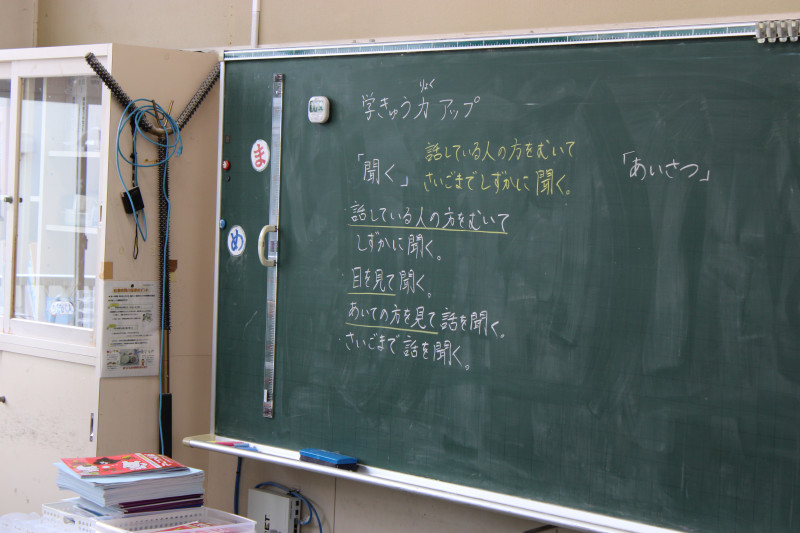 りょく
学きゅう力アップ
「聞く」
話している人の方をむいて
さいごまでしずかに聞く。
「あいさつ」
話している人の方をむいて
しずかに聞く。
目を見て聞く。
あいての方を見て話を聞く。
さいごまで話を聞く。
ま
め